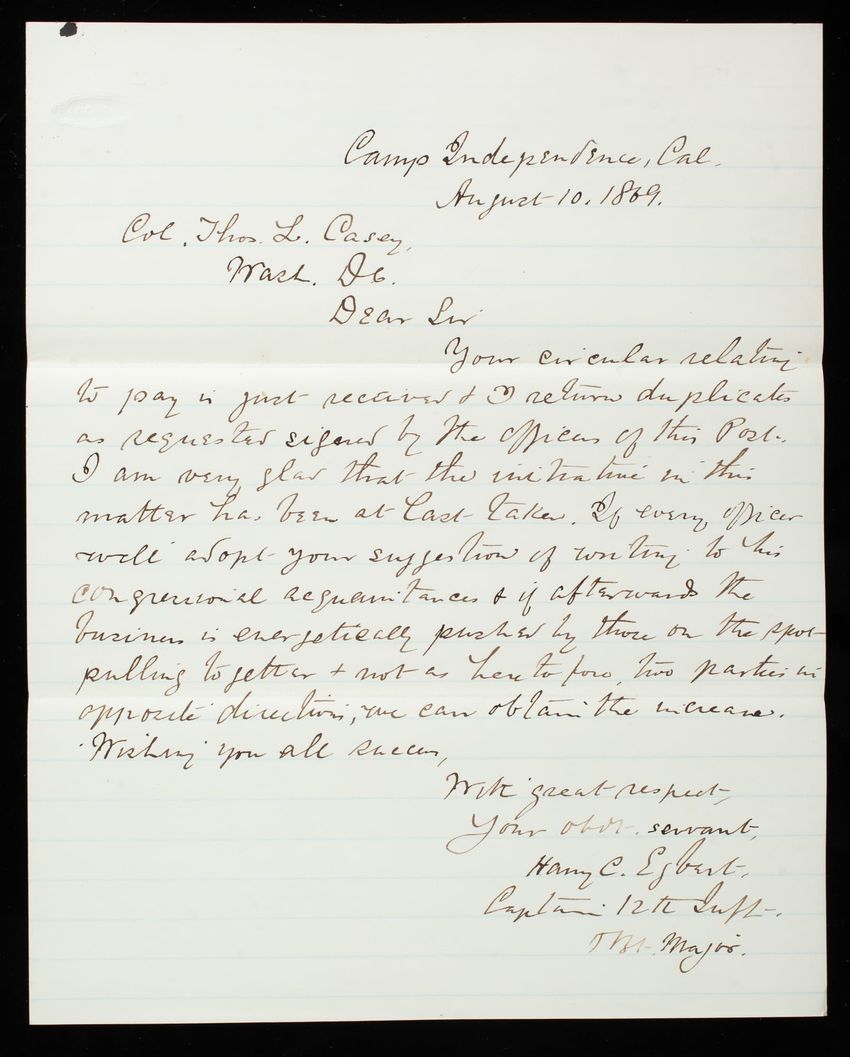 Camp Independence, Cal.
August 10. 1869.
Col. Thos. L. Casey,
Wash. D C.
Dear Sir
Your circular relating
to pay is just received & I return duplicates
as requested signed by the officers of this Post.
I am very glad that the initiative in this
matter has been at last taken. If every officer
will adopt your suggestion of writing to his
congressional acquaintances & if afterwards the
business is energetically pushed by those on the spot
pulling together & not as heretofore, two parties in
opposite directions, we can obtain the increase.
Wishing you all success,
With great respect,
Your obdt. servant,
Harry C. Egbert,
Captain 12th Inft.
& Bt. Major.